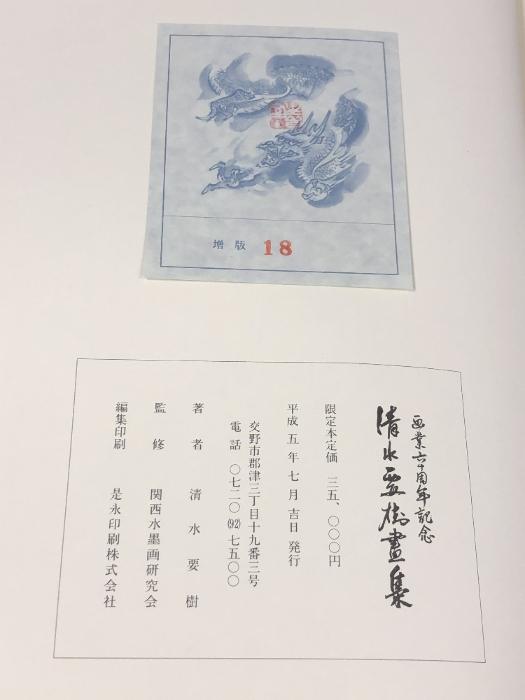 増版 18
画業六十周年記念
清水要樹畫集
限定本定価 三五、〇〇〇円
平成五年七月吉日発行
交野市郡津三丁目十九番三号
電話 〇七二〇(92)七五〇〇
著者 清水要樹
監修 関西水墨画研究会
編集印刷 是永印刷株式会社